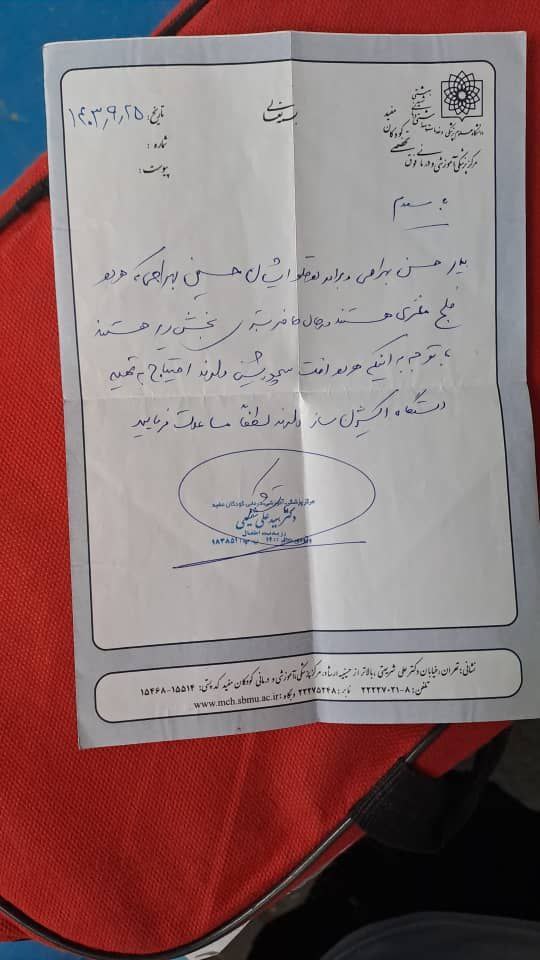 دانشگاه علوم پزشکی و خدمات بهداشتی درمانی شهید بهشتی
مرکز پزشکی، آموزشی و درمانی فوق تخصصی کودکان مفید
بسمه تعالی
تاریخ: ۱۴۰۳,۹,۲۵
شماره:
پیوست:
با سلام
حسن بهرامی و برادر دوقلو ایشان حسین بهرامی که هر دو
فلج مغزی هستند و در حال حاضر بستری بخش ریه هستند
با توجه به اینکه هر دو افت دارند احتیاج به تهیه
دستگاه اکسیژن ساز دارند لطفاً مساعدت فرمایید
مرکز پزشکی، آموزشی، درمانی کودکان مفید
دکتر
نشانی: تهران، خیابان دکتر علی شریعتی، بالاتر از حسینیه ارشاد، مرکز پزشکی، آموزشی و درمانی کودکان مفید کد پستی: ۱۵۵۱۴-۱۵۴۶۸
تلفن: ۸-۲۲۲۲۷۰۲۱ نمابر: ۲۲۲۷۵۲۴۸ وبگاه: www.mch.sbmu.ac.ir